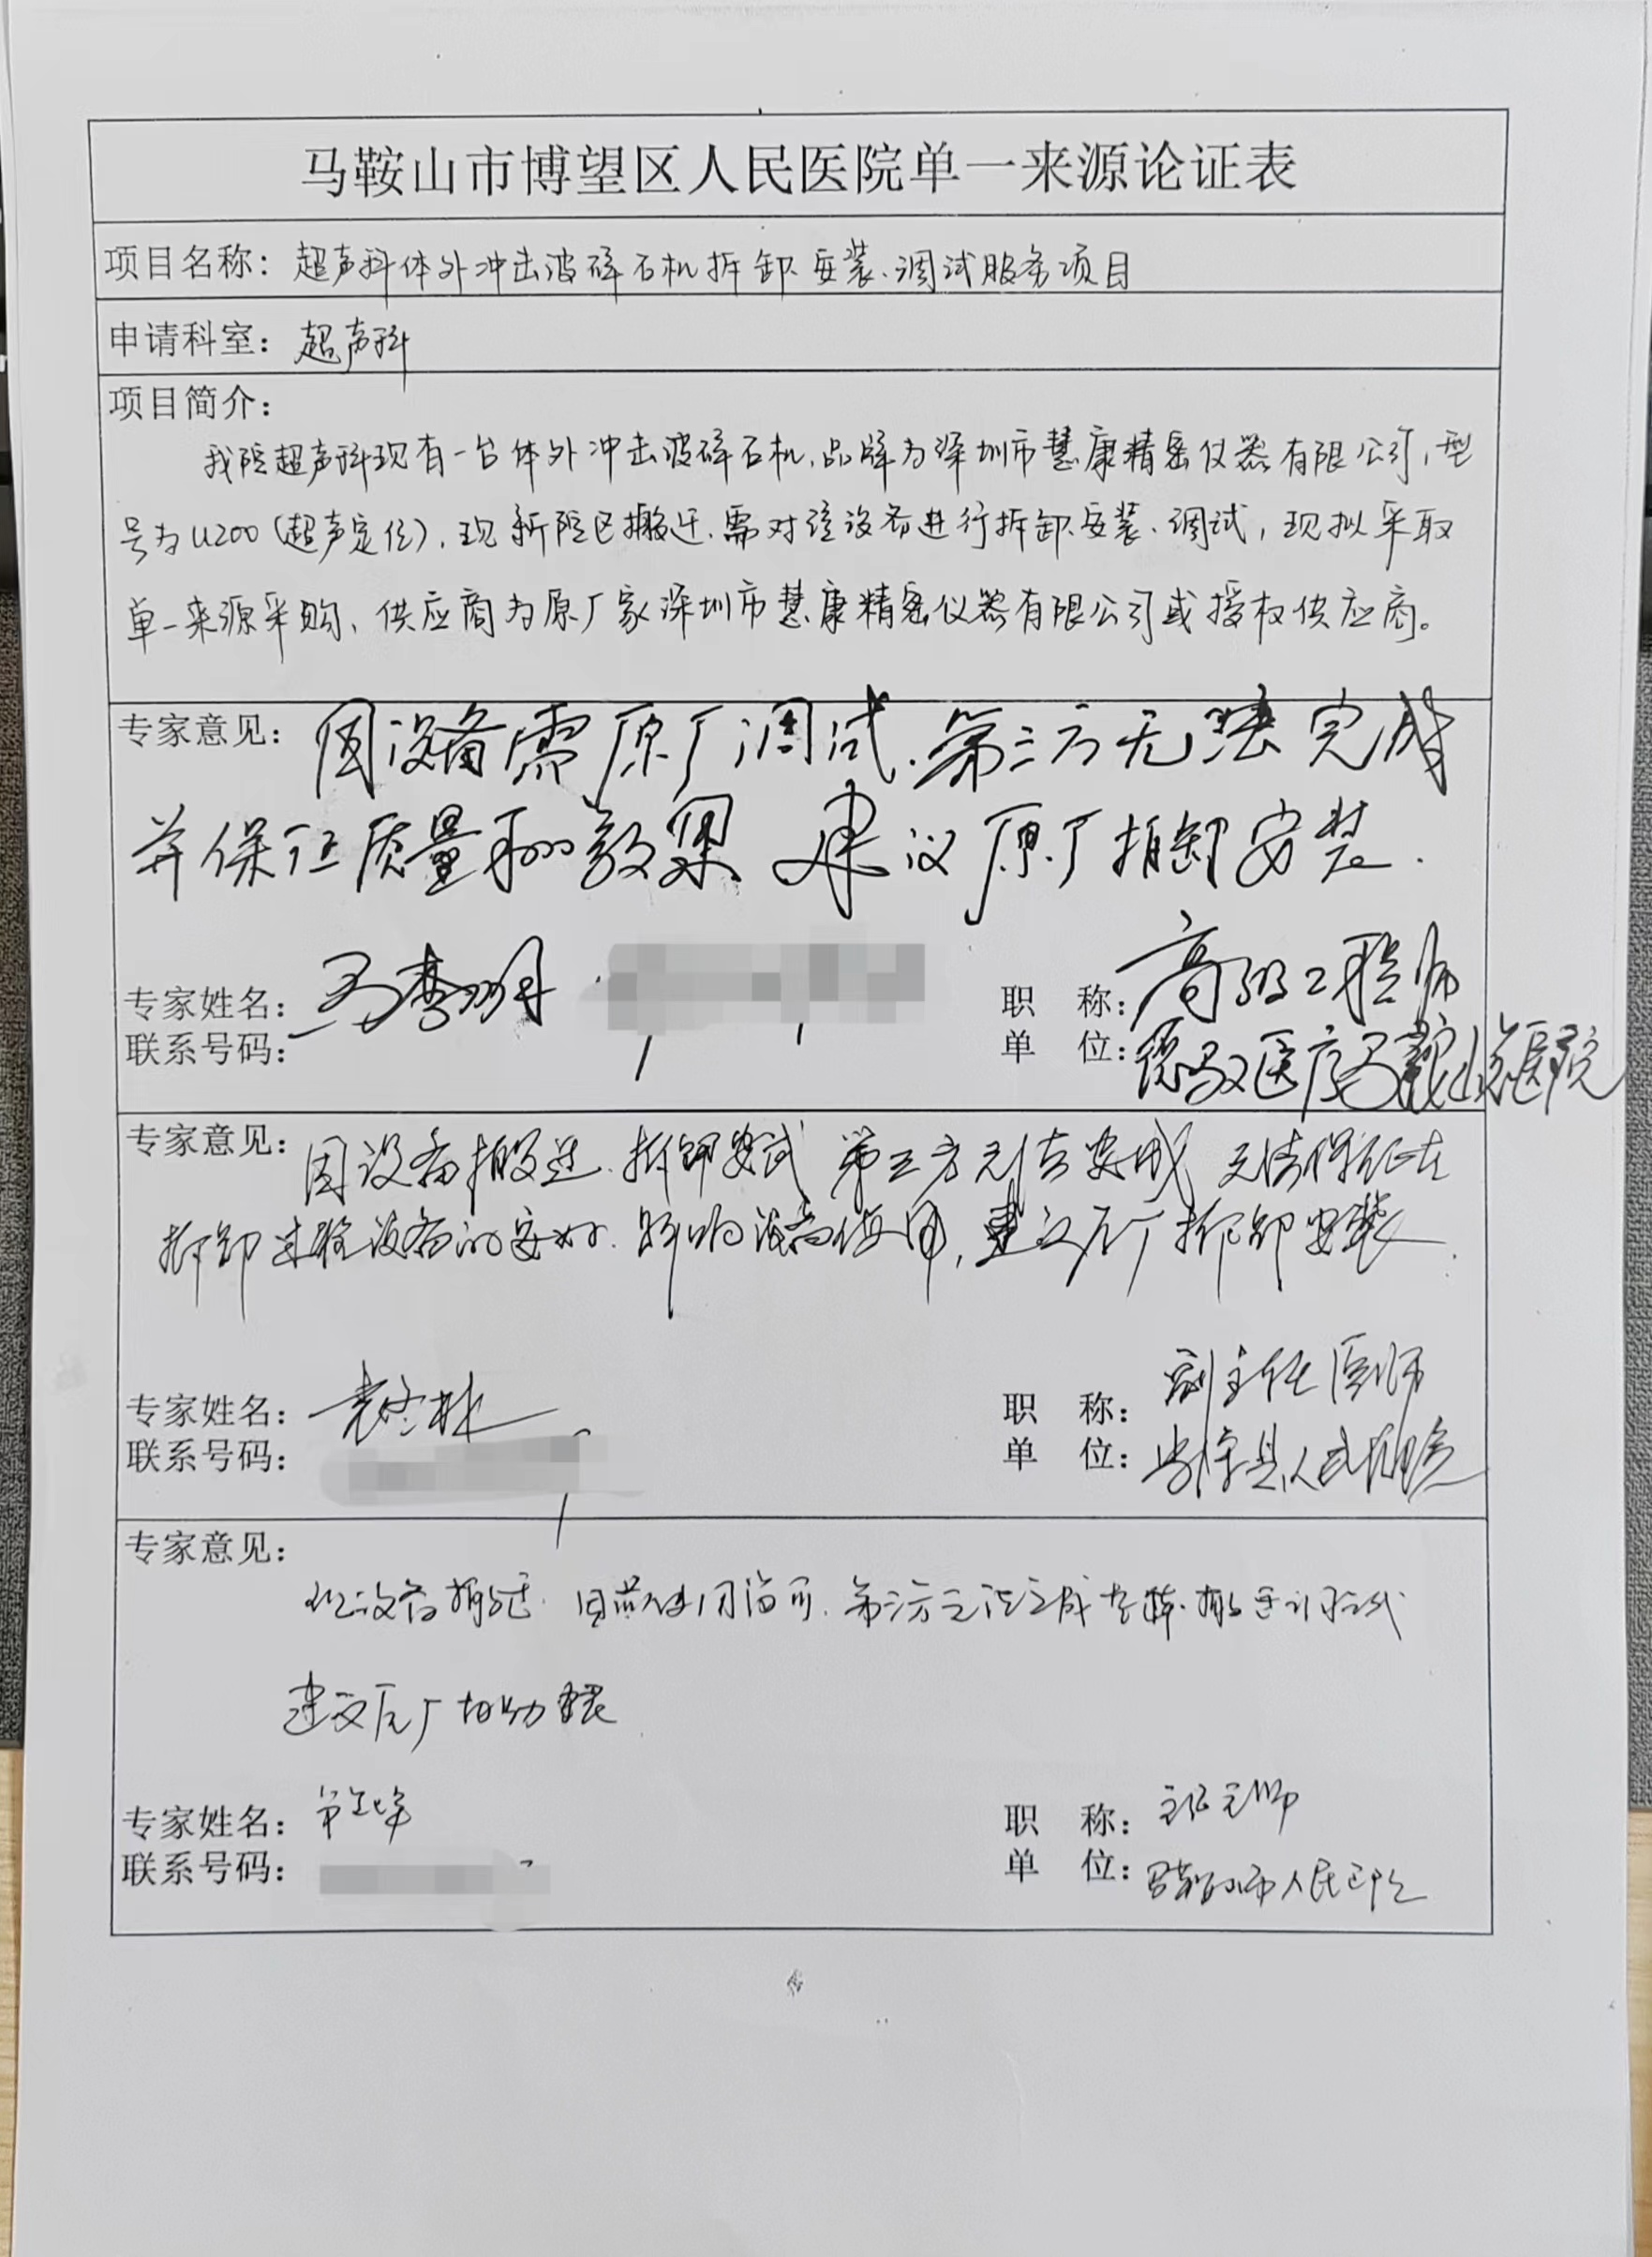 马鞍山市博望区人民医院单一来源论证表
项目名称：超声科体外冲击波碎石机拆卸、安装、调试服务项目
申请科室：超声科
项目简介：
我院超声科现有一台体外冲击波碎石机，品牌为深圳市慧康精密仪器有限公司，型
号为U200（超声定位），现新院区搬迁，需对该设备进行拆卸、安装、调试，现拟采取
单一来源采购，供应商为原厂家深圳市慧康精密仪器有限公司或授权供应商。
专家意见：因设备需原厂调试，第三方无法完成
并保证质量和效果 建议原厂拆卸安装.
专家姓名： 职 称：高级工程师
联系号码： 单 位：德驭医疗马鞍山总医院
专家意见：因设备搬迁、拆卸安试 第三方无法完成 无法保证在
拆卸过程设备的完好、影响设备使用，建议原厂拆卸安装.
专家姓名： 职 称：副主任医师
联系号码： 单 位：县人民医院
专家意见：
设备搬迁. 目前使用尚可，第三方无法完成 调试
建议原厂协助
专家姓名： 职 称：
联系号码： 单 位：马鞍山市人民医院